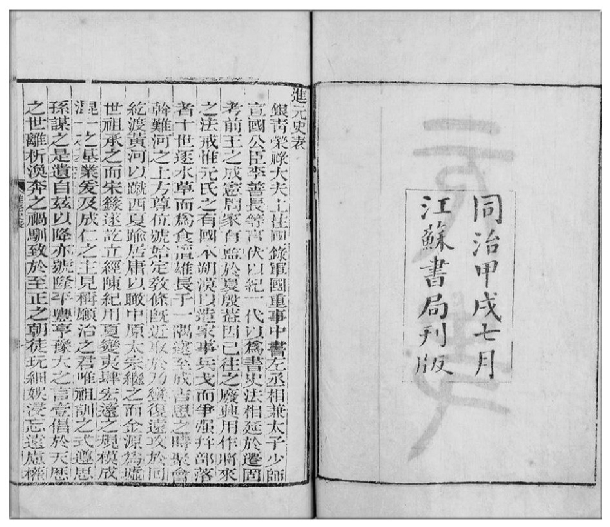 同治甲戌七月
江蘇書局刊版
進元史表
銀青榮祿大夫上柱國錄軍國重事中書左丞相兼太子少師
宣國公臣李善長等言伏以紀一代以爲書史法相延於遷固
考前王之成憲周家有監於夏殷葢因已往之廢興用作將來
之法戒惟元氏之有國本朔漠以造家事兵戈而爭强幷部落
者十世逐水草而爲食擅雄長于一隅逮至成吉思之時聚會
斡難河之上方尊位號始定教條旣近取於乃蠻復遠攻於回
紇渡黃河以蹴西夏踰居庸以瞰中原太宗繼之而金源爲墟
世祖承之而宋籙遂訖立經陳紀用夏變夷肆宏遠之規模成
混一之基業爰及成仁之主見稱願治之君唯祖訓之式遵思
孫謀之是遺自茲以降亦號隆平豐亨豫大之言壹倡於天曆
之世離析渙奔之禍馴致於至正之朝徒玩細娛浸忘遠慮權